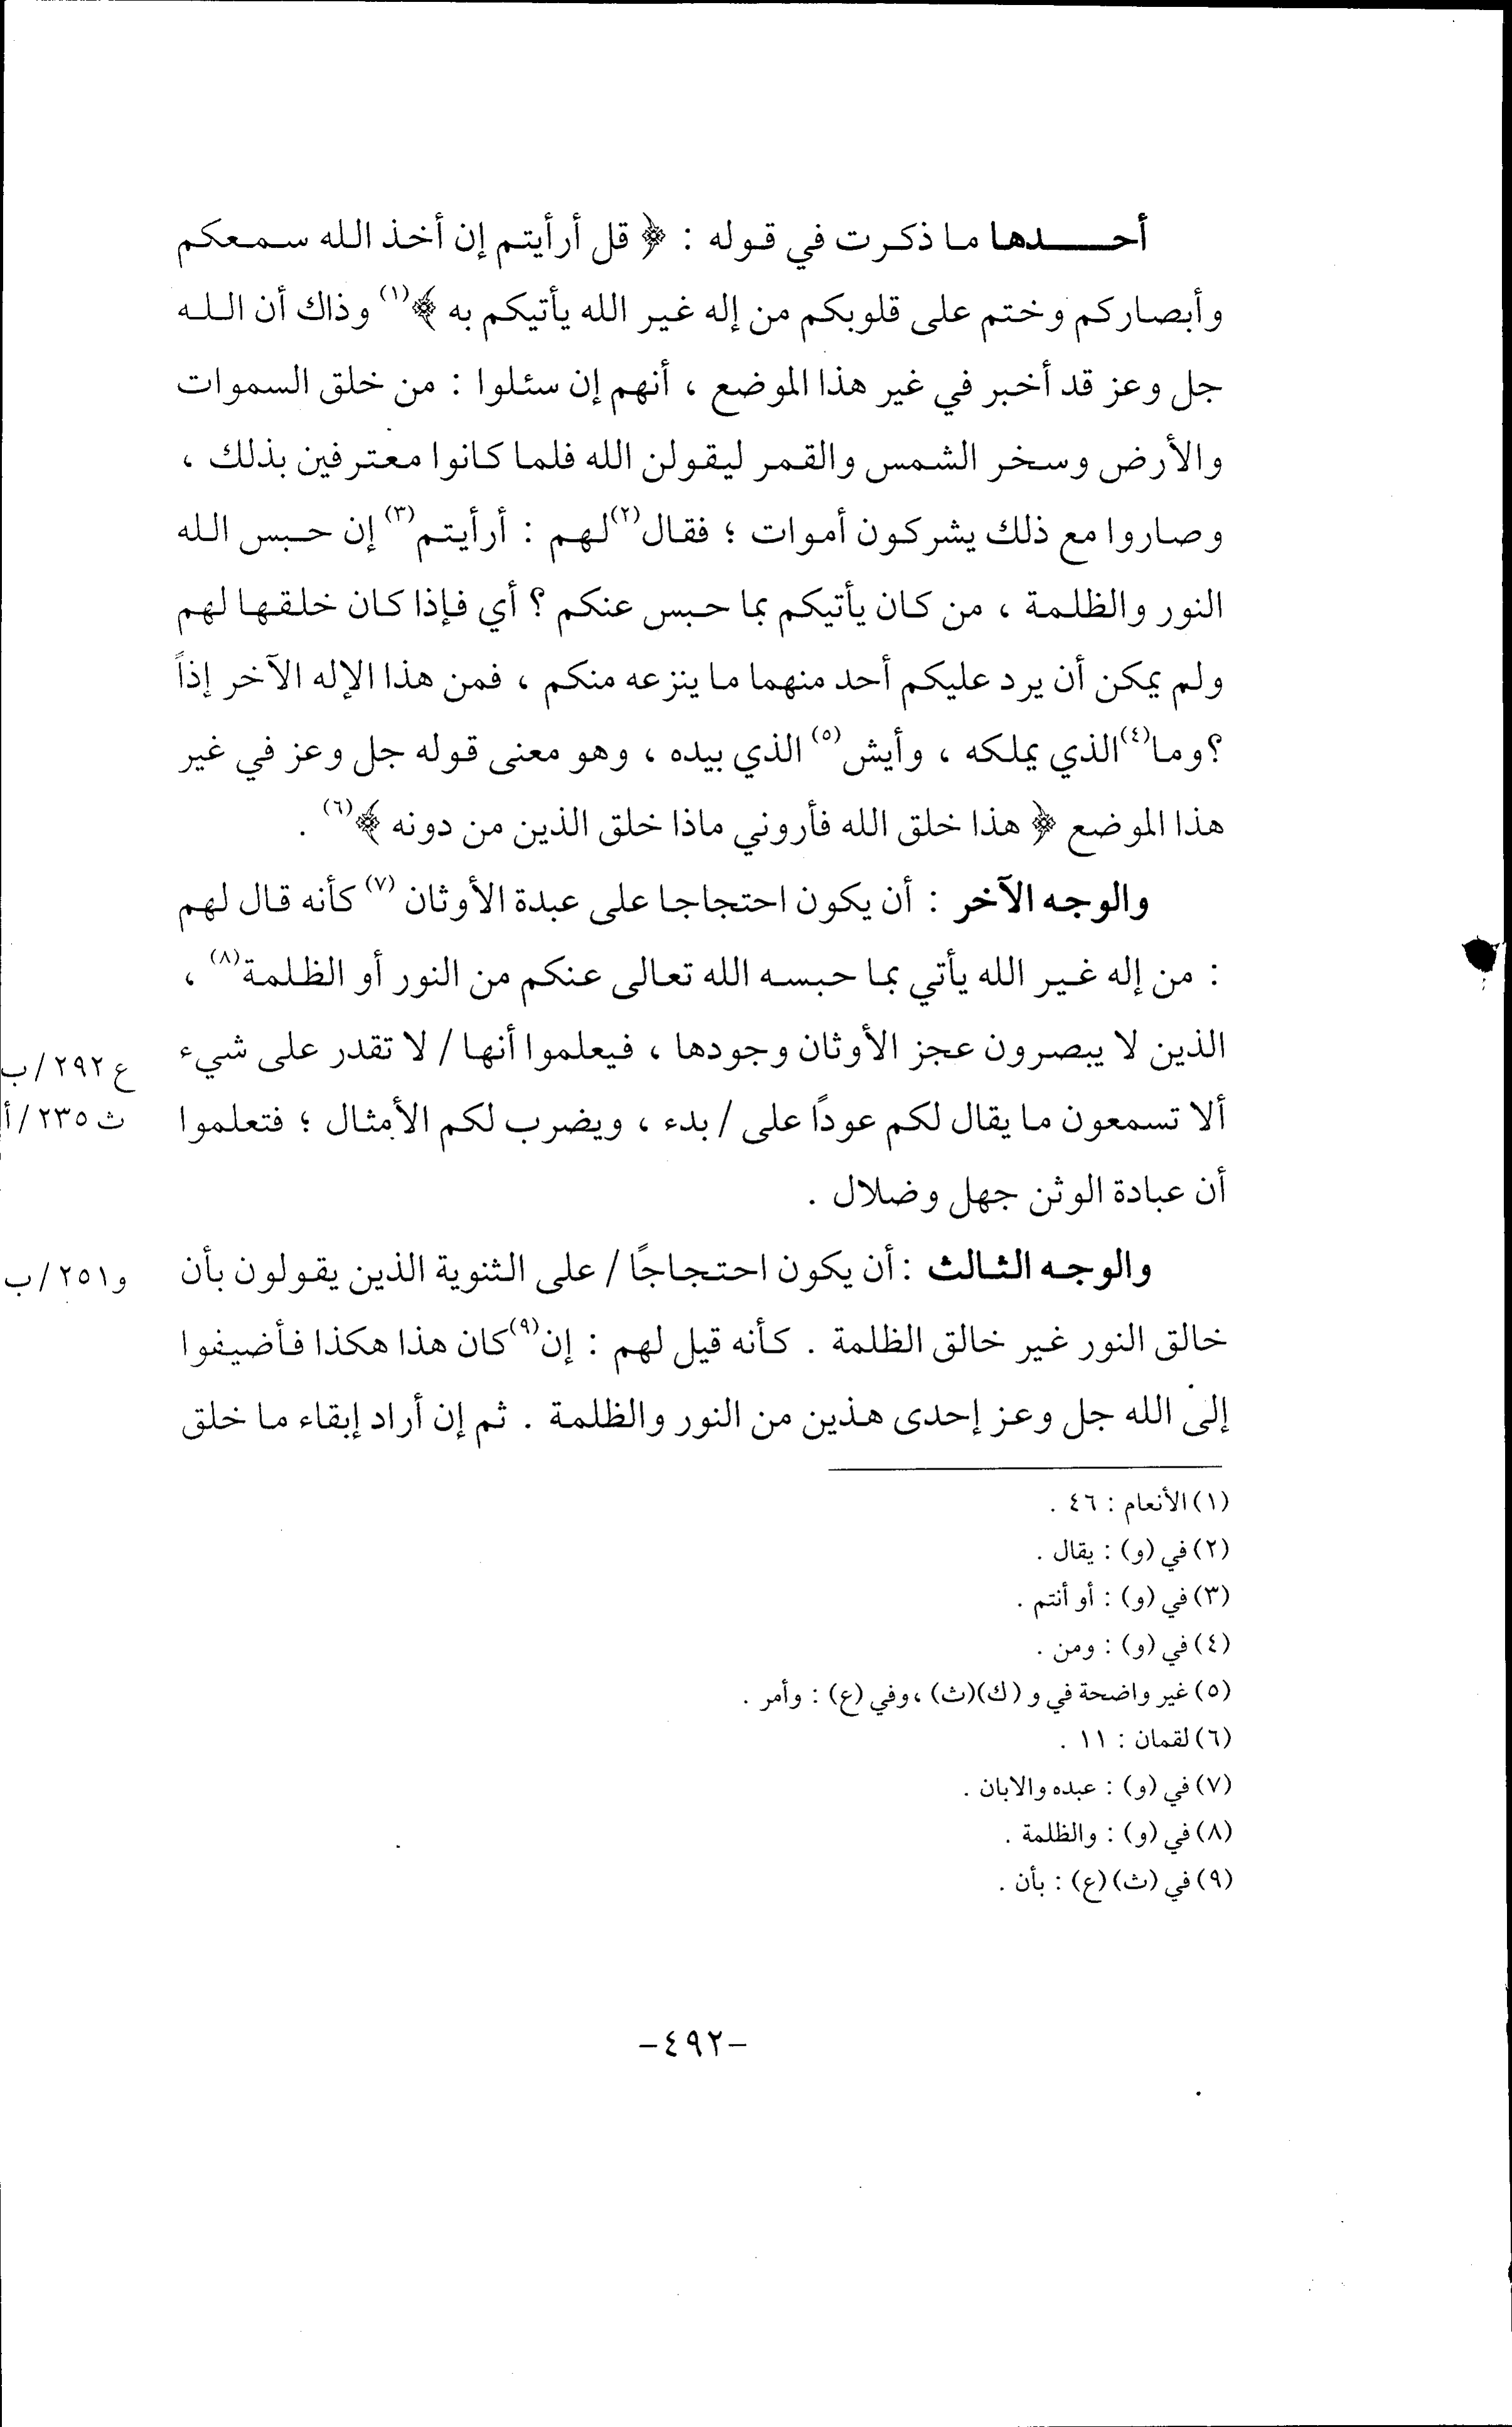 أحـــــدها ما ذكرت في قوله : ﴿ قل أرأيتم إن أخذ الله سمعكم
وأبصاركم وختم على قلوبكم من إله غير الله يأتيكم به ﴾(١) وذاك أن الله
جل وعز قد أخبر في غير هذا الموضع ، أنهم إن سئلوا : من خلق السموات
والأرض وسخر الشمس والقمر ليقولن الله فلما كانوا معترفين بذلك ،
وصاروا مع ذلك يشركون أموات ؛ فقال(٢) لهم : أرأيتم(٣) إن حبس الله
النور والظلمة ، من كان يأتيكم بما حبس عنكم ؟ أي فإذا كان خلقها لهم
ولم يمكن أن يرد عليكم أحد منهما ما ينزعه منكم ، فمن هذا الإله الآخر إذاً
؟ وما(٤) الذي يملكه ، وأيش(٥) الذي بيده ، وهو معنى قوله جل وعز في غير
هذا الموضع ﴿ هذا خلق الله فأروني ماذا خلق الذين من دونه ﴾(٦) .
والوجه الآخر : أن يكون احتجاجا على عبدة الأوثان (٧) كأنه قال لهم
: من إله غير الله يأتي بما حبسه الله تعالى عنكم من النور أو الظلمة(٨) ،
الذين لا يبصرون عجز الأوثان وجودها ، فيعلموا أنها / لا تقدر على شيء
ع ٢٩٢/ب
ألا تسمعون ما يقال لكم عودًا على / بدء ، ويضرب لكم الأمثال ؛ فتعلموا
ث ٢٣٥/أ
أن عبادة الوثن جهل وضلال .
والوجه الثالث : أن يكون احتجاجًا / على الثنوية الذين يقولون بأن
و ٢٥١/ب
خالق النور غير خالق الظلمة . كأنه قيل لهم : إن(٩) كان هذا هكذا فأضيفوا
إلى الله جل وعز إحدى هذين من النور والظلمة . ثم إن أراد إبقاء ما خلق
(١) الأنعام : ٤٦ .
(٢) في (و) : يقال .
(٣) في (و) : أو أنتم .
(٤) في (و) : ومن .
(٥) غير واضحة في و (ك)(ث) ، وفي (ع) : وأمر .
(٦) لقمان : ١١ .
(٧) في (و) : عبده والابان .
(٨) في (و) : والظلمة .
(٩) في (ث) (ع) : بأن .
-٤٩٢-